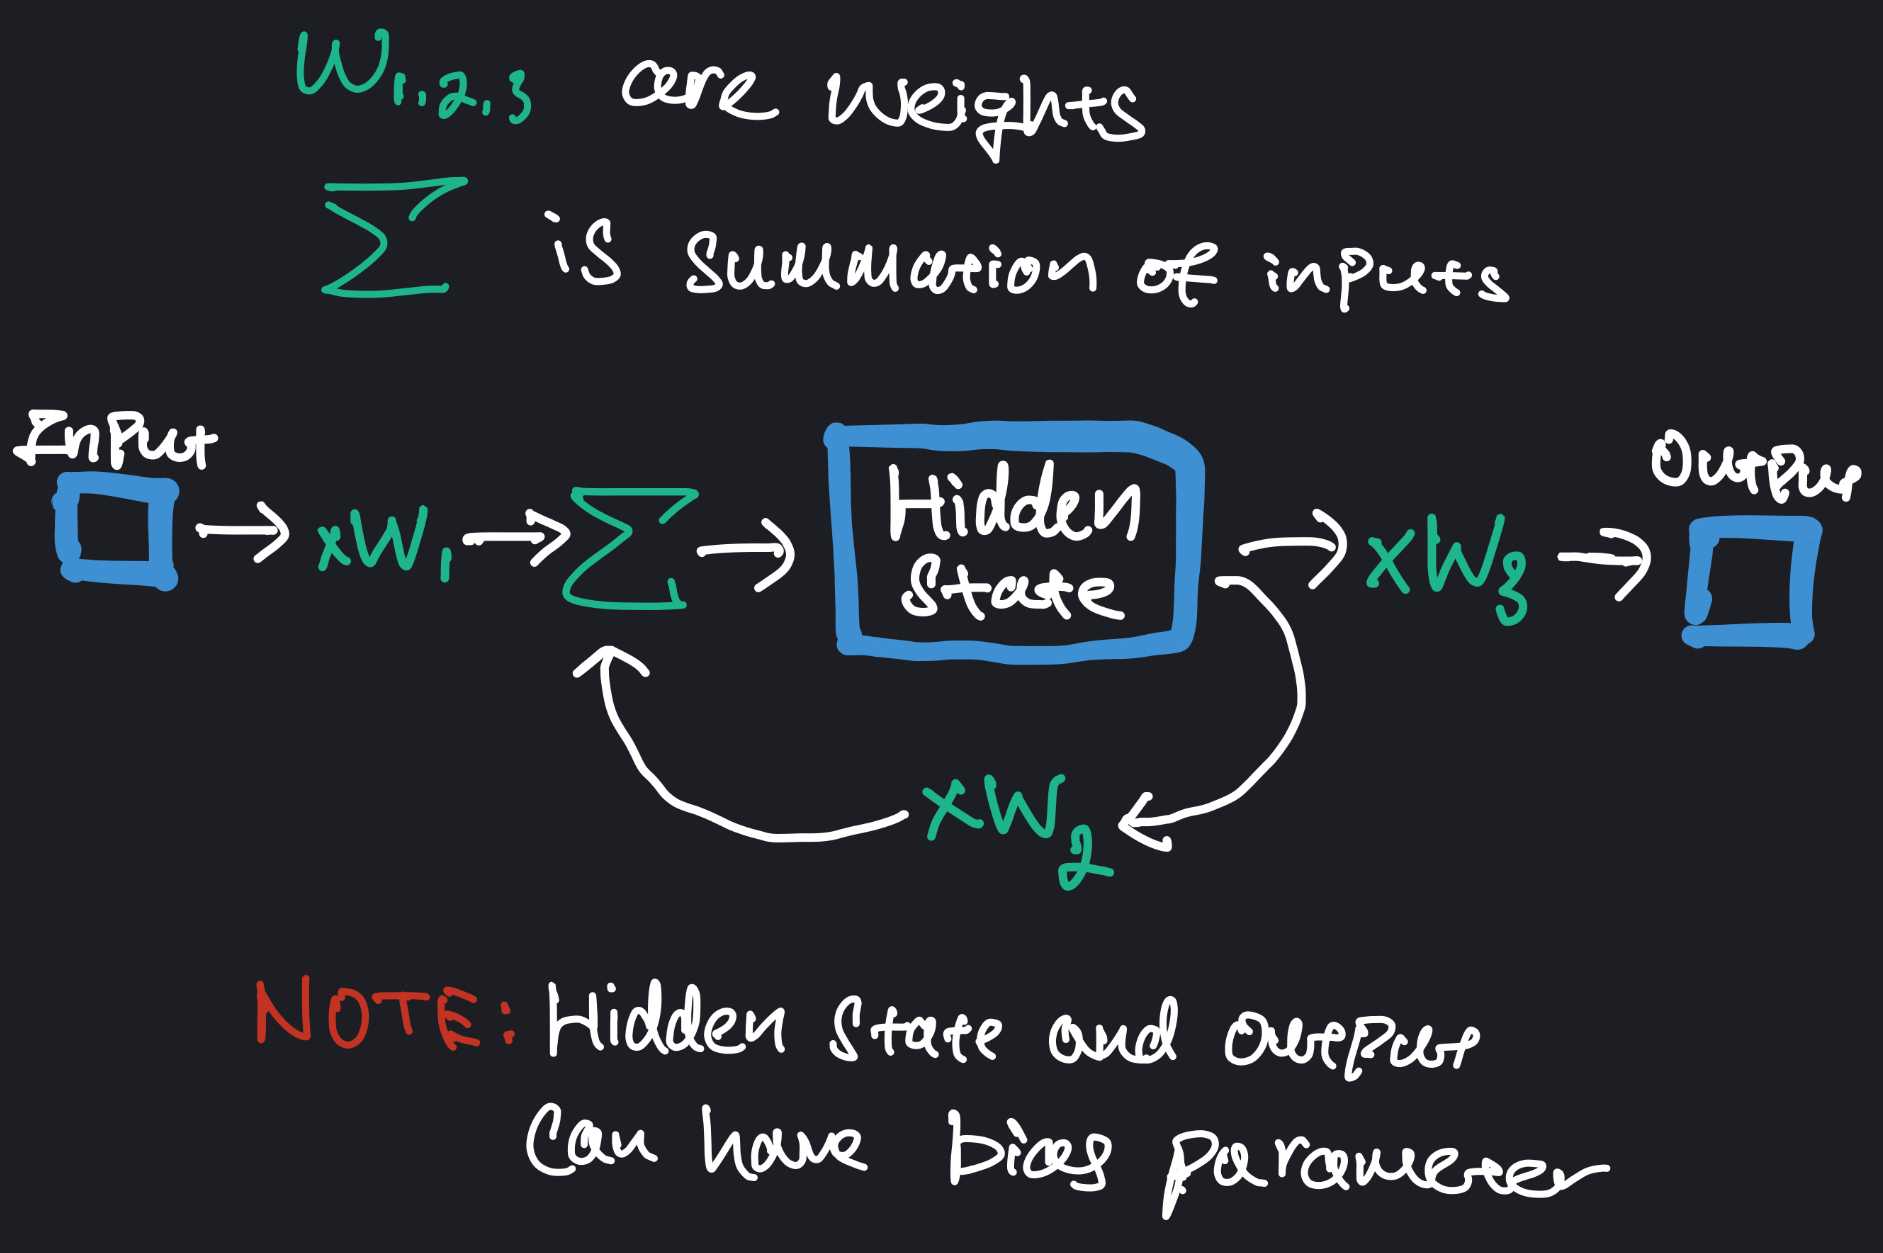 W₁,₂,₃ are weights
Σ is summation of inputs
Input
Output
xW₁
Σ
Hidden
State
xW₃
xW₂
NOTE: Hidden State and Output
Can have bias parameter